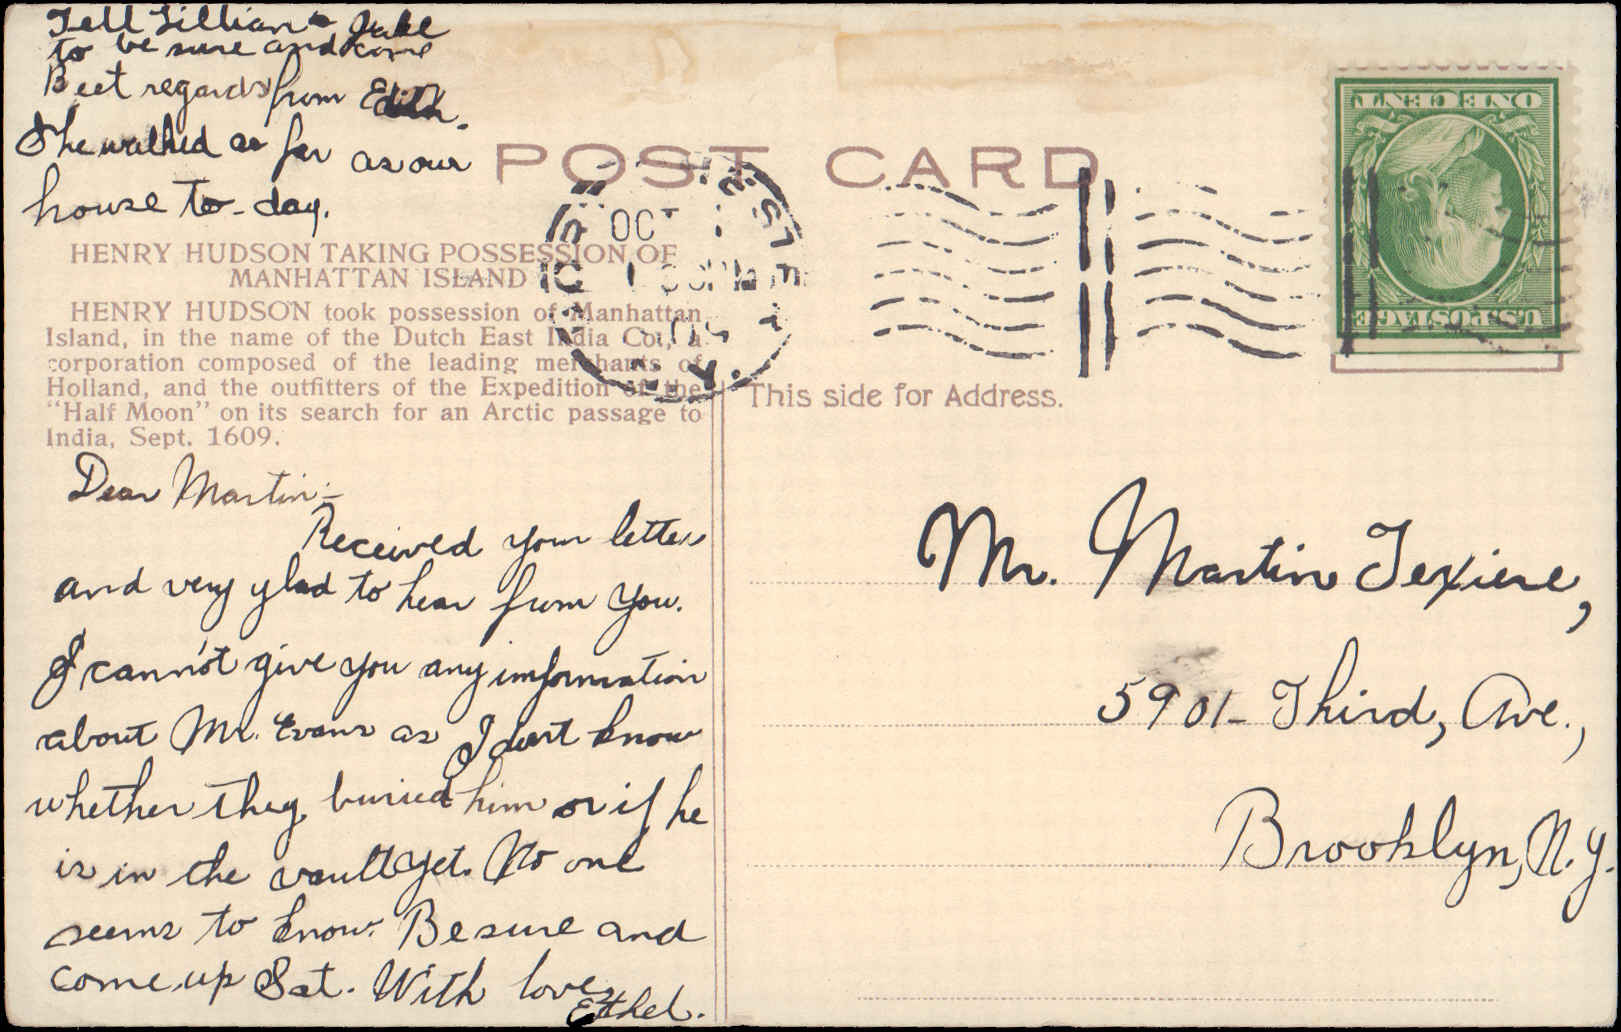 Tell Lillian & Jake
to be sure and come
Best regards from Edith.
She walked as far as our
house to-day.
POST CARD
HENRY HUDSON TAKING POSSESSION OF
MANHATTAN ISLAND
HENRY HUDSON took possession of Manhattan
Island, in the name of the Dutch East India Co., a
corporation composed of the leading merchants of
Holland, and the outfitters of the Expedition of the
"Half Moon" on its search for an Arctic passage to
India, Sept. 1609.
Dear Martin:-
Received your letter
and very glad to hear from you.
I cann'ot give you any information
about Mr. Evans as I don't know
whether they buried him or if he
is in the vault yet. No one
seems to know. Be sure and
come up Sat. With love
Ethel.
OCT
N.Y.
U.S. POSTAGE
ONE CENT
This side for Address.
Mr. Martin Texiere,
5901- Third, Ave.,
Brooklyn, N.Y.